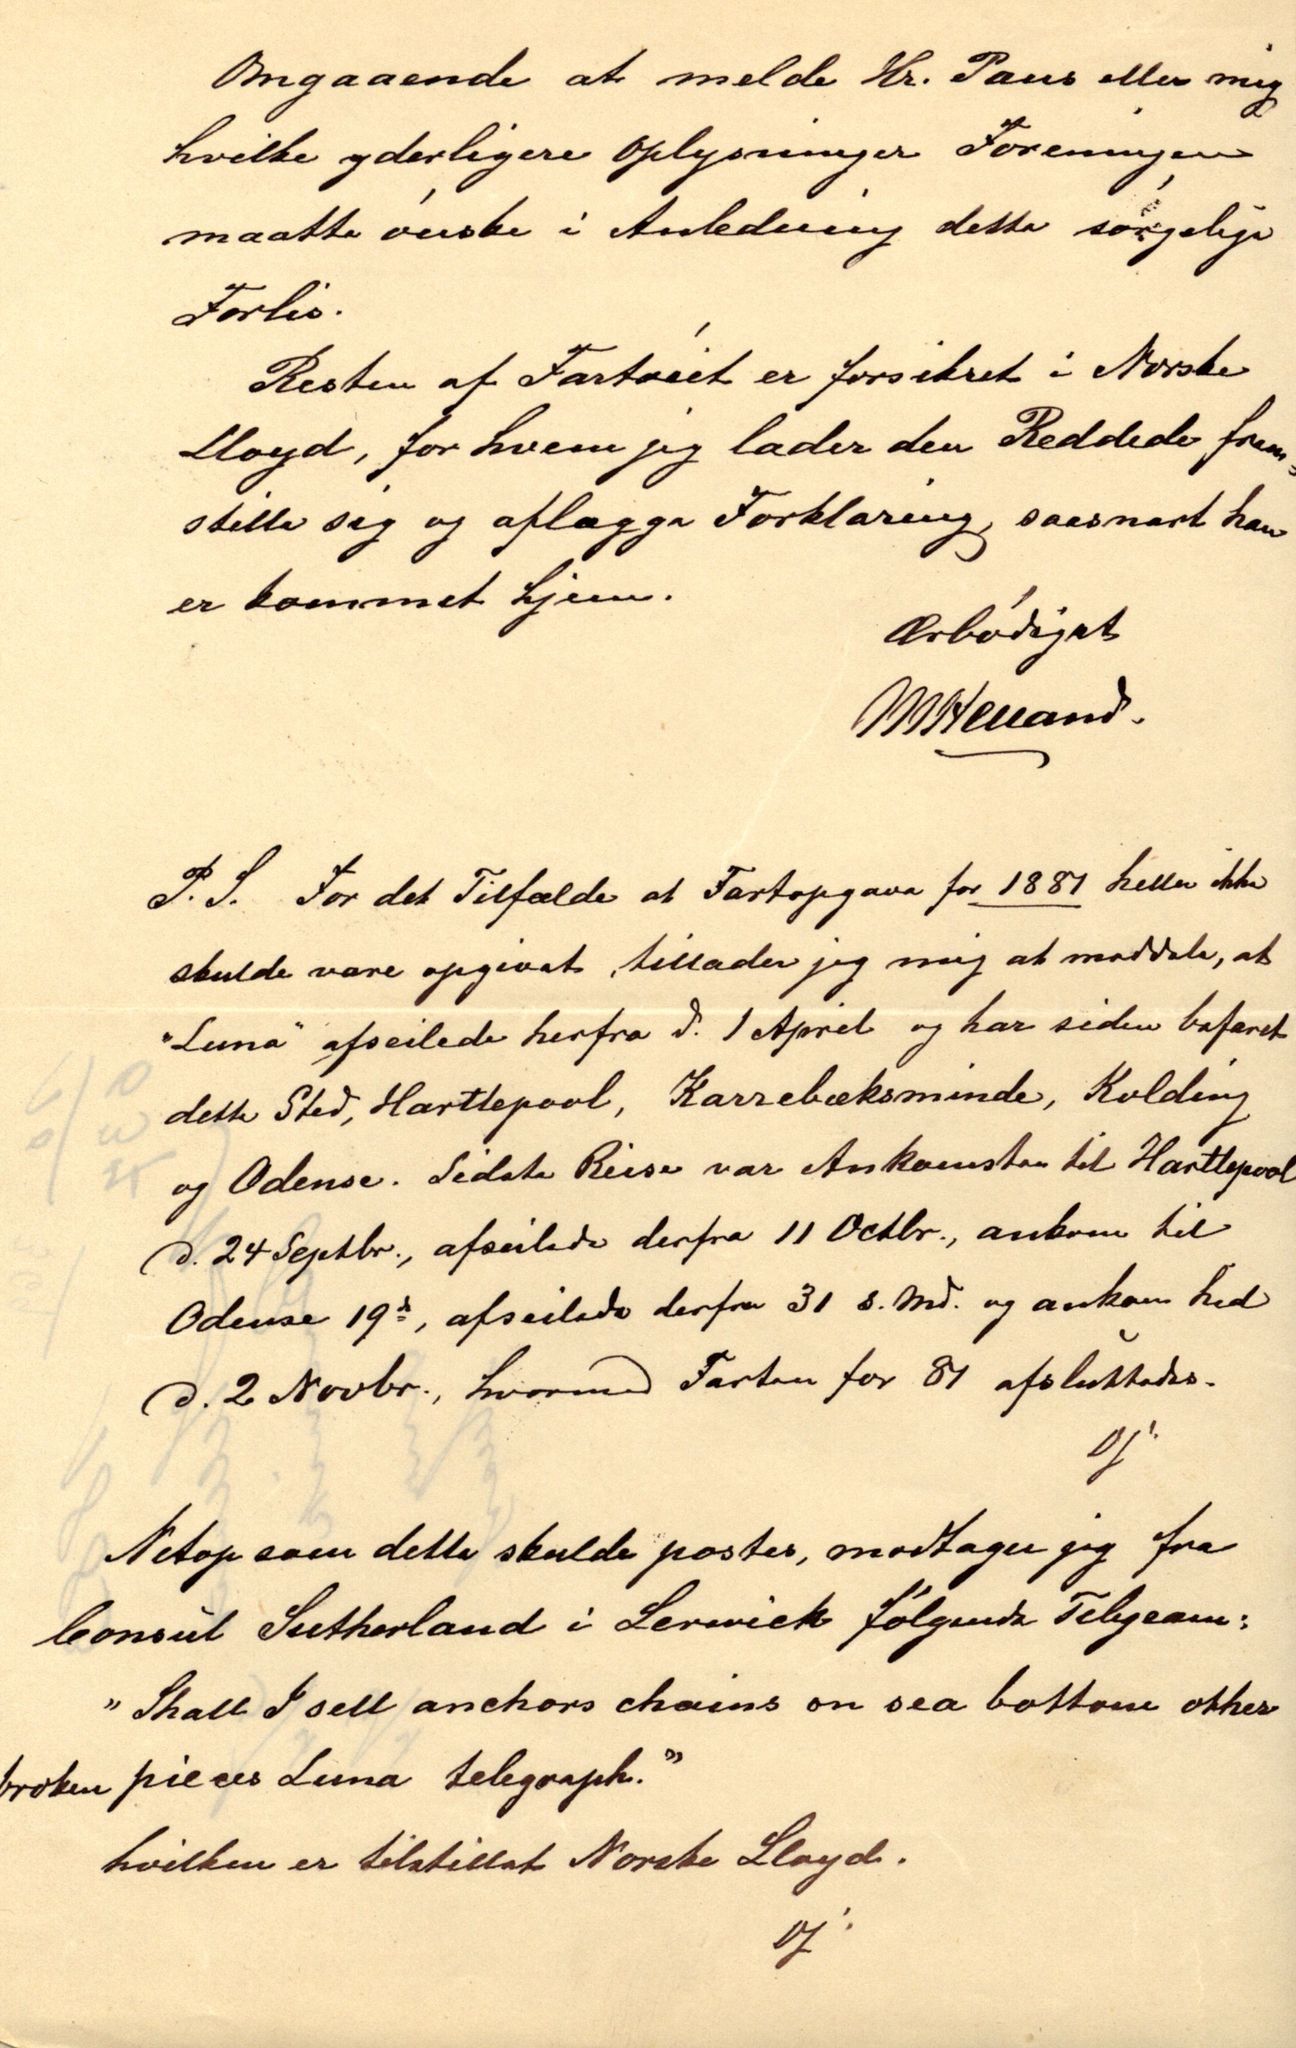 Omgaaende at melde Hr. Paus eller mig
hvilke yderligere Oplysninger Foreningen
maatte ónske i Anledning dette sórgelige
Forlis.
Resten af Fartóiet er forsikret i Norske
Lloyd, for hvem jeg lader den Reddede frem=
stille sig og aflægge Forklaring, saasnart han
er kommet hjem.
Ærbódigst
MHelland.
P.S. For det Tilfælde at Fartopgave for 1881 heller ikke
skulde være opgivet, tillader jeg mig at meddele, at
"Luna" afseilede herfra d. 1 April og har siden befaret
dette Sted, Hartlepool, Karrebæksminde, Kolding
og Odense. Sidste Reise var Ankomsten til Hartlepool
d. 24 Septbr., afseilede derfra 11 Octbr., ankom til
Odense 19d, afseilede derfra 31 s. Md. og ankom hid
d. 2 Novbr., hvormed Farten for 81 afsluttedes.
Netop som dette skulde postes, modtager jeg fra
Consul Sutherland i Lerwick fólgende Telegram:
"Shall I sell anchors chains on sea bottom other
broken pieces Luna telegraph."
hvilken er tilstillet Norske Lloyd.